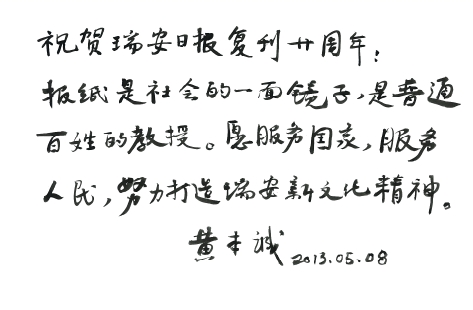 祝贺瑞安日报复刊廿周年：
报纸是社会的一面镜子，是普通
百姓的教授。愿服务国家，服务
人民，努力打造瑞安新文化精神。
黄本诚 2013.05.08